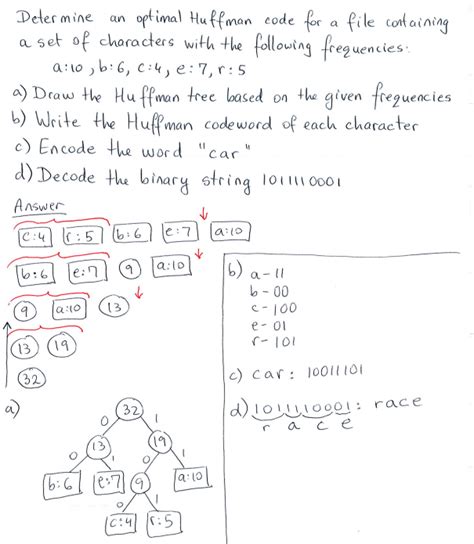 Determine an optimal Huffman code for a file containing
a set of characters with the following frequencies:
a:10, b:6, c:4, e:7, r:5
a) Draw the Huffman tree based on the given frequencies
b) Write the Huffman codeword of each character
c) Encode the word "car"
d) Decode the binary string 1011110001
Answer
c:4 r:5 b:6 e:7 a:10
b:6 e:7 9 a:10
9 a:10 13
13 19
32
a)
32
0 1
13 19
0 1 0 1
b:6 e:7 9 a:10
0 1
c:4 r:5
b) a-11
b-00
c-100
e-01
r-101
c) car: 10011101
d) 1011110001: race
r a c e